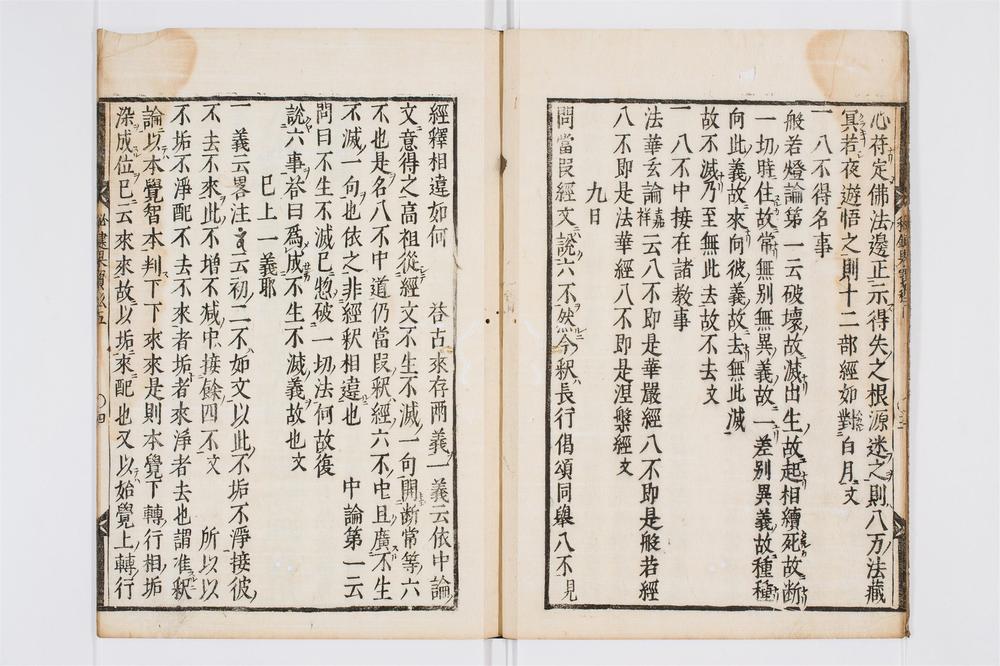 心符定佛法邊正示得失之根源迷之則八万法藏
冥若夜遊悟之則十二部經如對白月文
一 八不得名事
般若燈論第一云破壞故滅出生故起相續死故断
一切時住故常無別無異義故一差別異義故種種
向此義故來向彼義故去無此滅
故不滅乃至無此去故不去文
一 八不中接在諸教事
法華玄論嘉祥云八不即是華嚴經八不即是般若經
八不即是法華經八不即是涅槃經文
九日
問當叚經文說六不然今釈長行偈頌同舉八不見
經釋相違如何 荅古來存兩義一義云依中論
文意得之高祖從經文不生不滅一句開断常等六
不也是名八不中道仍當叚釈經六不屯且廣不生
不滅一句也依之非經釈相違也 中論第一云
問曰不生不滅已惣破一切法何故復
說六事荅曰為成不生不滅義故也文
已上一義耶
一義云畧注云初二不如文以此不垢不淨接彼
不去不來此不增不减中接餘四不文 所以以
不垢不淨配不去不來者垢者來淨者去也謂准釈
論以本覺智本判下下來來是則本覺下轉行相垢
染成位已云來來故以垢來配也又以始覺上轉行